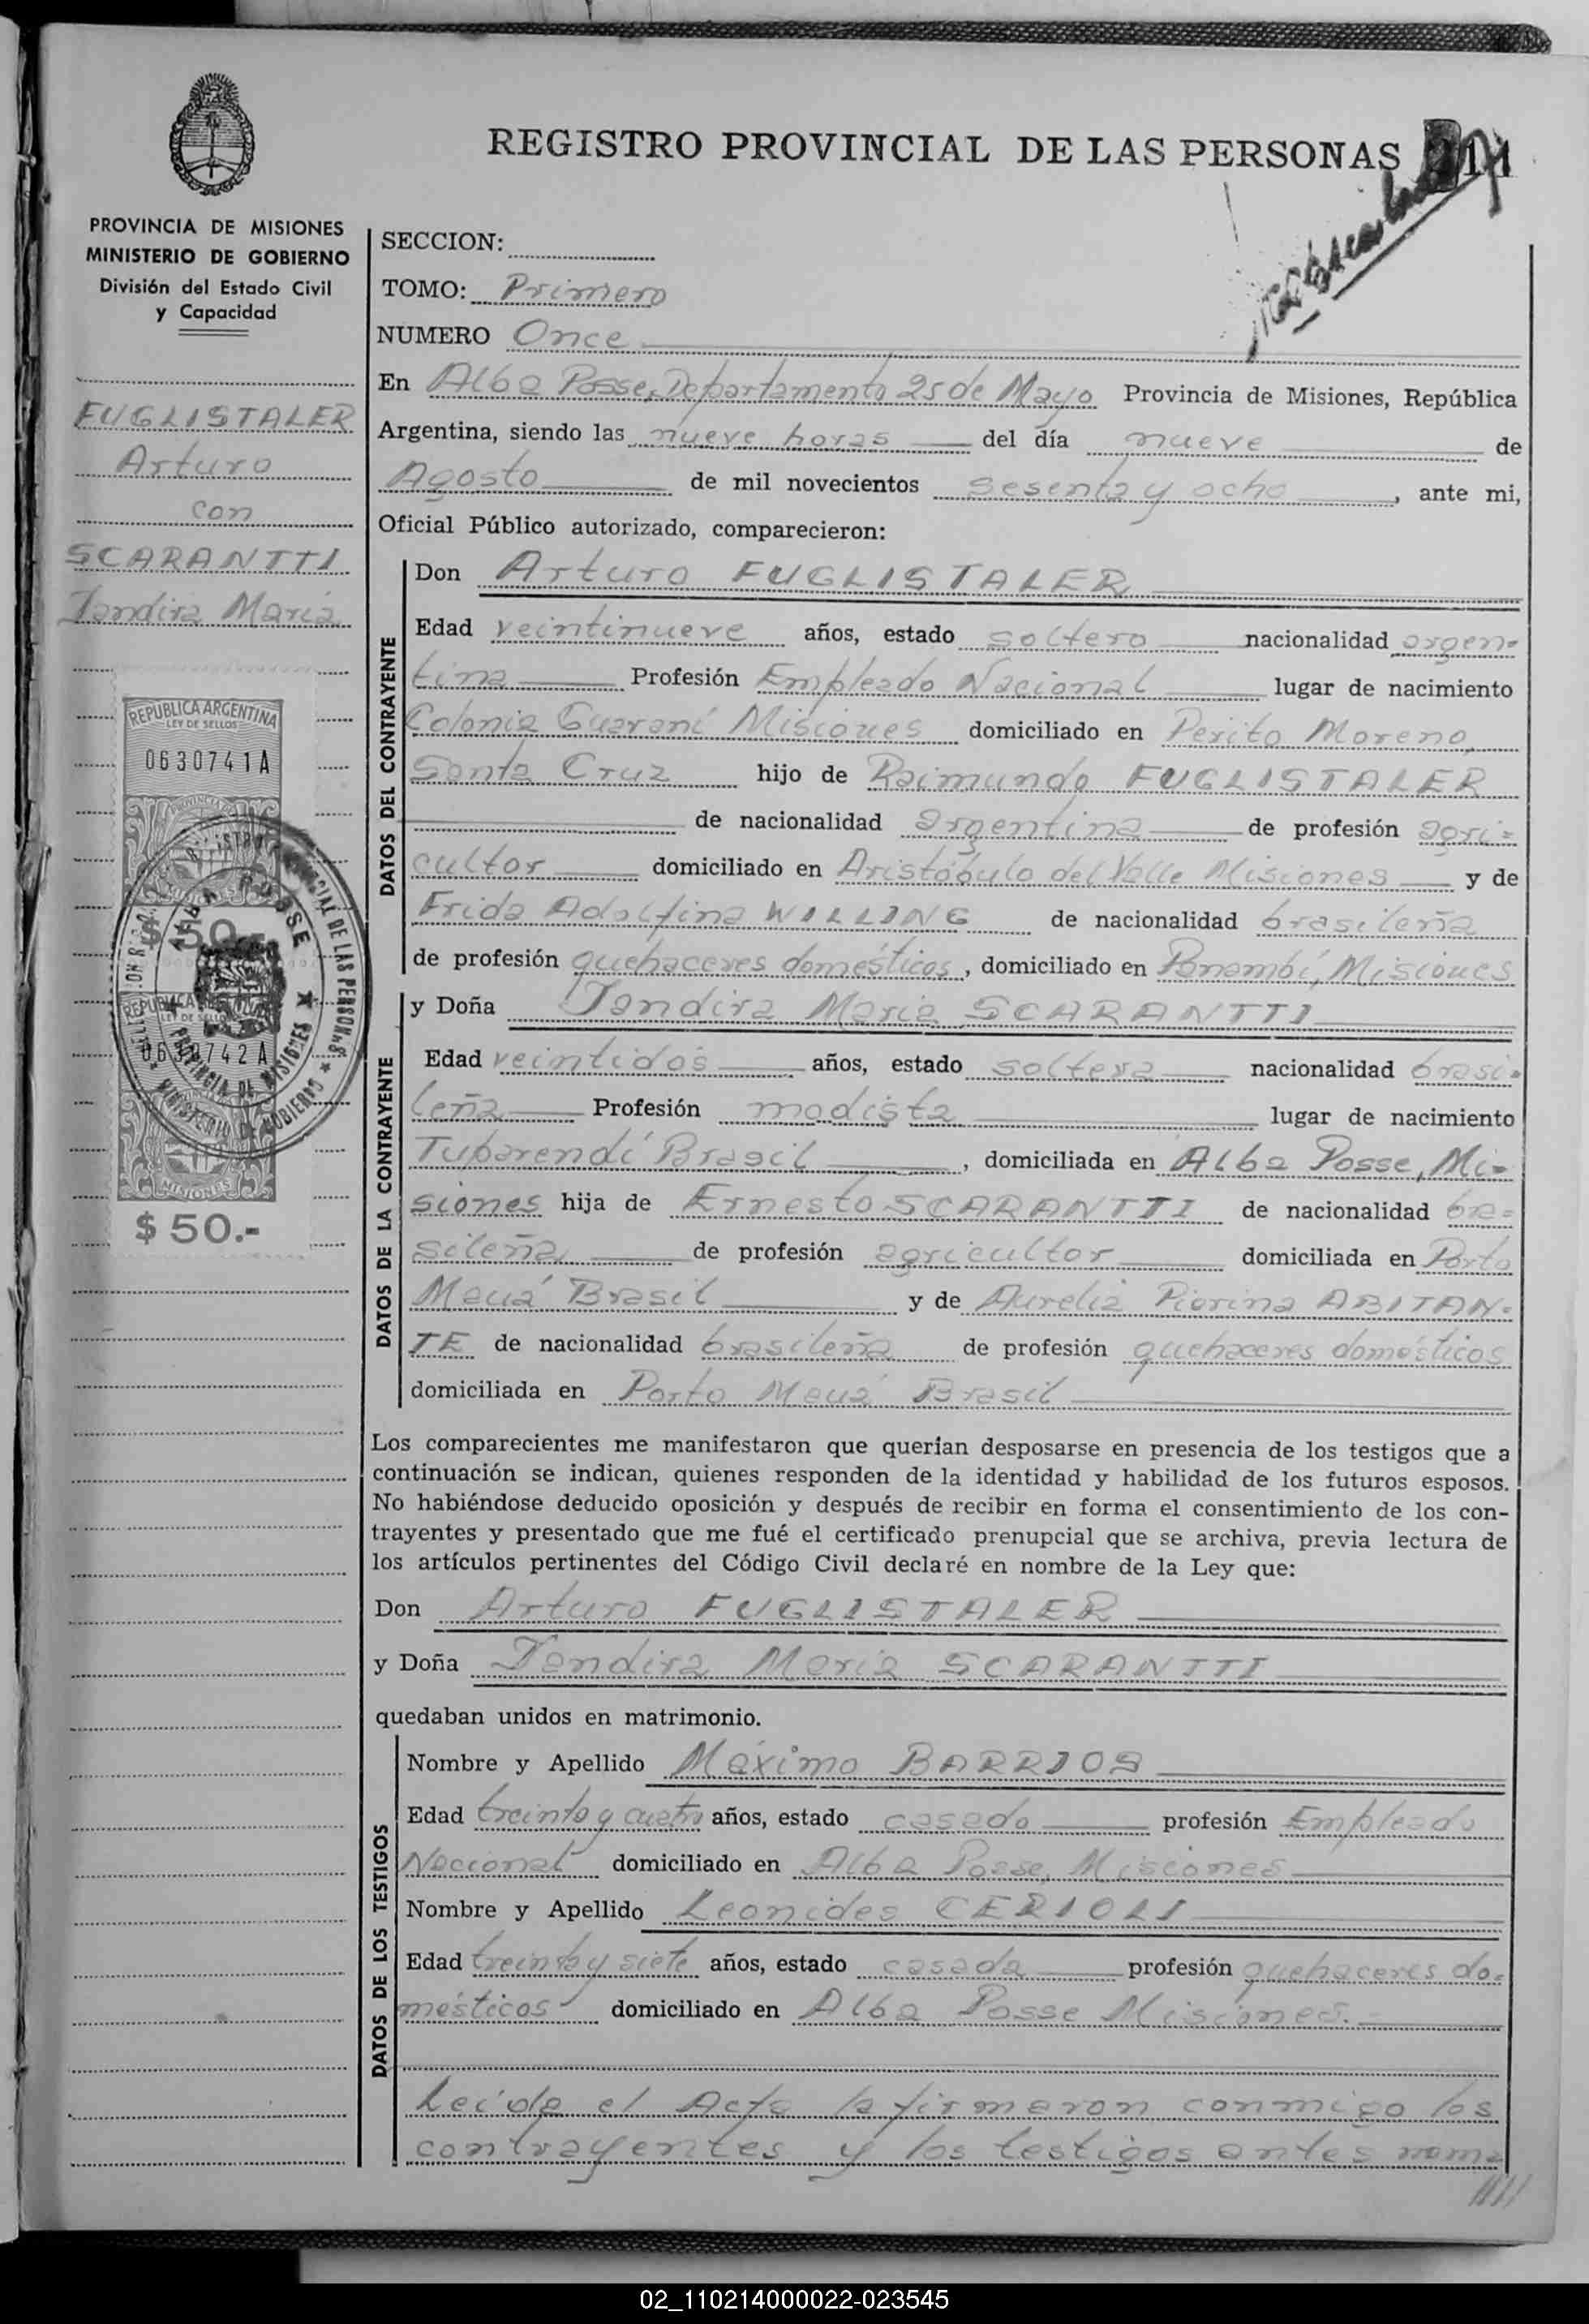 REGISTRO PROVINCIAL DE LAS PERSONAS
PROVINCIA DE MISIONES
MINISTERIO DE GOBIERNO
División del Estado Civil
y Capacidad
FUGLISTALER
Arturo
con
SCARANTTI
Jandira María
REPUBLICA ARGENTINA
LEY DE SELLOS
0630741A
MISIONES
$ 50.-
0630742A
MISIONES
$ 50.-
SECCION:
TOMO: Primero
NUMERO Once
En Alba Posse, Departamento 25 de Mayo Provincia de Misiones, República
Argentina, siendo las nueve horas del día nueve de
Agosto de mil novecientos sesenta y ocho, ante mi,
Oficial Público autorizado, comparecieron:
DATOS DEL CONTRAYENTE
Don Arturo FUGLISTALER
Edad veintinueve años, estado soltero nacionalidad argen-
tina Profesión Empleado Nacional lugar de nacimiento
Colonia Guaraní Misiones domiciliado en Perito Moreno,
Santa Cruz hijo de Raimundo FUGLISTALER
de nacionalidad argentina de profesión agri-
cultor domiciliado en Aristóbulo del Valle Misiones y de
Frida Adolfina WILLING de nacionalidad brasileña
de profesión quehaceres domésticos, domiciliado en Panambí, Misiones
DATOS DE LA CONTRAYENTE
y Doña Jandira Maria SCARANTTI
Edad veintidós años, estado soltera nacionalidad brasi-
leña Profesión modista lugar de nacimiento
Tuparendí Brasil, domiciliada en Alba Posse, Mi-
siones hija de Ernesto SCARANTTI de nacionalidad bra-
sileña de profesión agricultor domiciliada en Porto
Mauá Brasil y de Aurelia Pierina ABITAN-
TE de nacionalidad brasileña de profesión quehaceres domésticos
domiciliada en Porto Mauá Brasil
Los comparecientes me manifestaron que querían desposarse en presencia de los testigos que a
continuación se indican, quienes responden de la identidad y habilidad de los futuros esposos.
No habiéndose deducido oposición y después de recibir en forma el consentimiento de los con-
trayentes y presentado que me fué el certificado prenupcial que se archiva, previa lectura de
los artículos pertinentes del Código Civil declaré en nombre de la Ley que:
Don Arturo FUGLISTALER
y Doña Jandira Maria SCARANTTI
quedaban unidos en matrimonio.
DATOS DE LOS TESTIGOS
Nombre y Apellido Máximo BARRIOS
Edad treinta y cuatro años, estado casado profesión Empleado
Nacional domiciliado en Alba Posse, Misiones
Nombre y Apellido Leonides CERIOLI
Edad treinta y siete años, estado casada profesión quehaceres do-
mésticos domiciliado en Alba Posse Misiones.
Leída el Acta la firmaron conmigo los
contrayentes y los testigos antes nom-
02_110214000022-023545